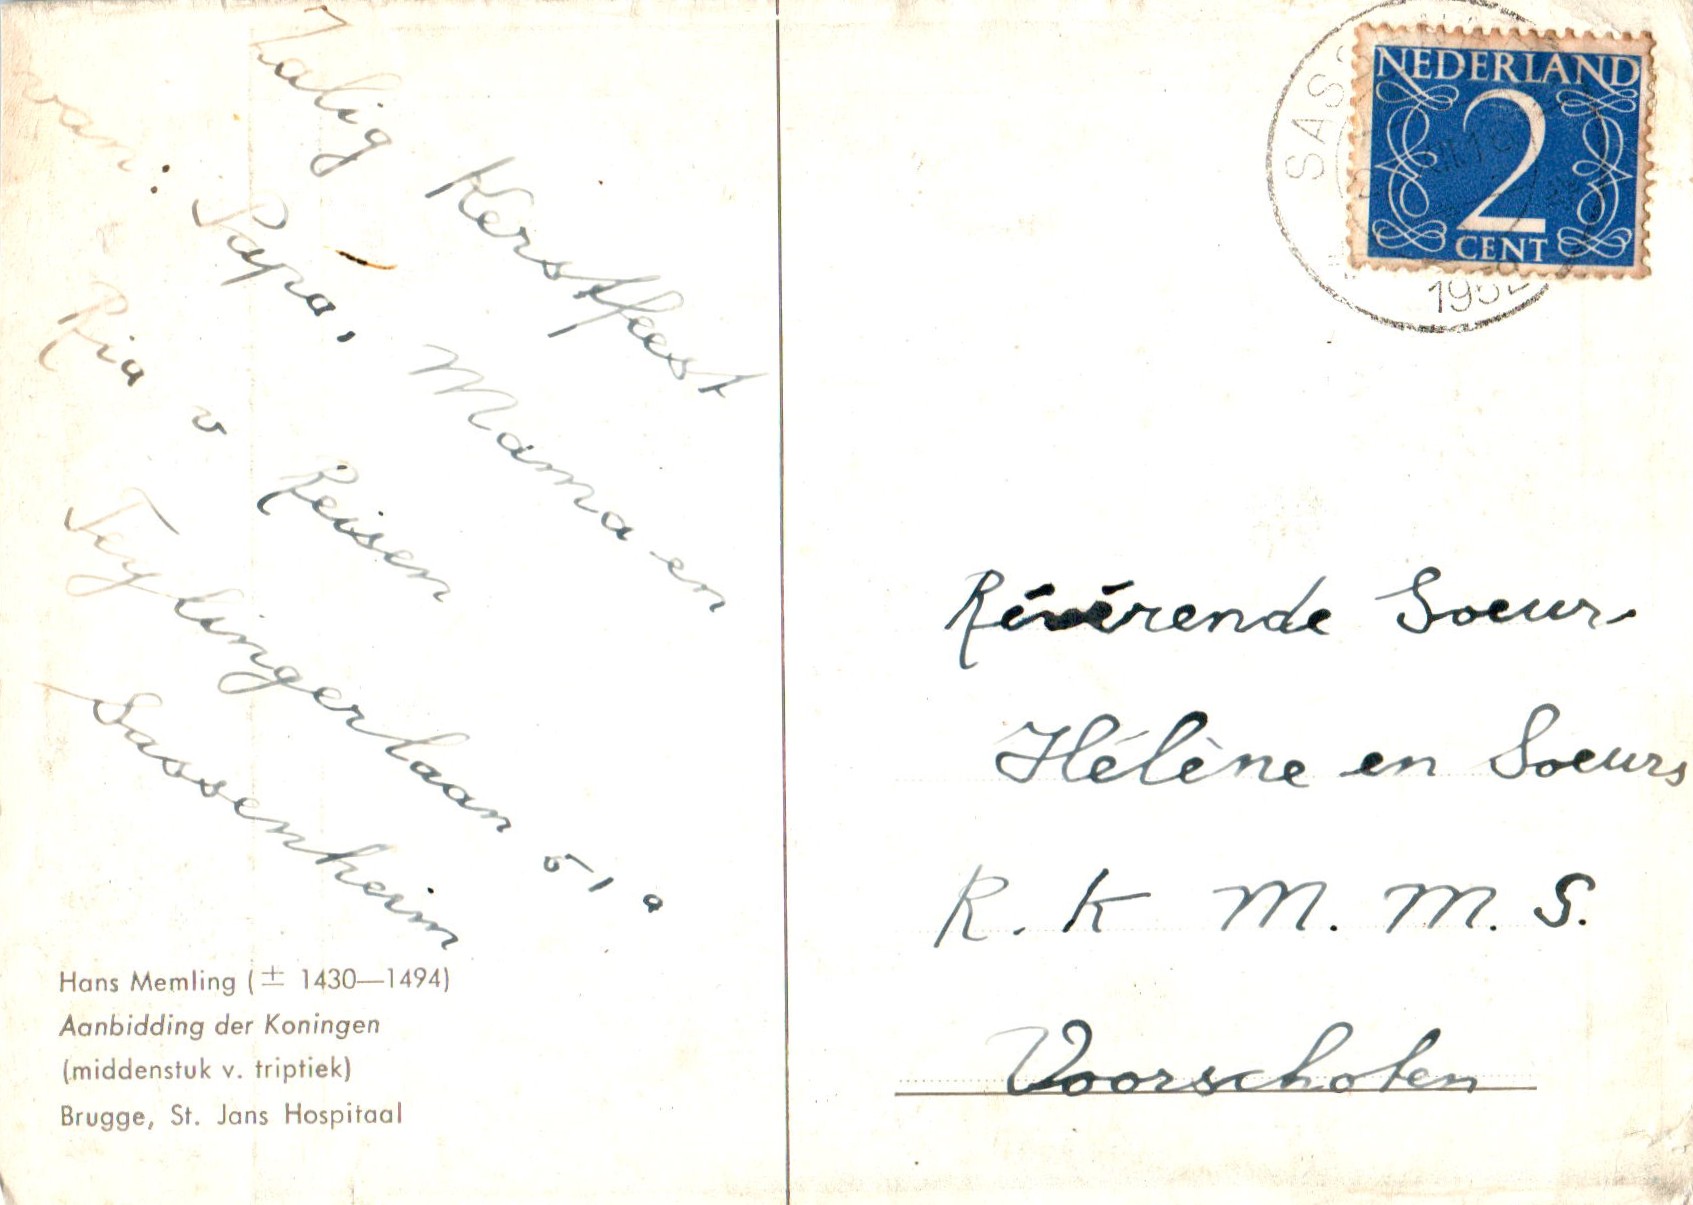 Zalig Kerstfeest
van: Papa, Mama en
Ria v Reisen
Teylingerlaan 51a
Sassenheim
Hans Memling (± 1430—1494)
Aanbidding der Koningen
(middenstuk v. triptiek)
Brugge, St. Jans Hospitaal
NEDERLAND
2
CENT
Révérende Soeur
Hélène en Soeurs
R. K M. M. S.
Voorschoten